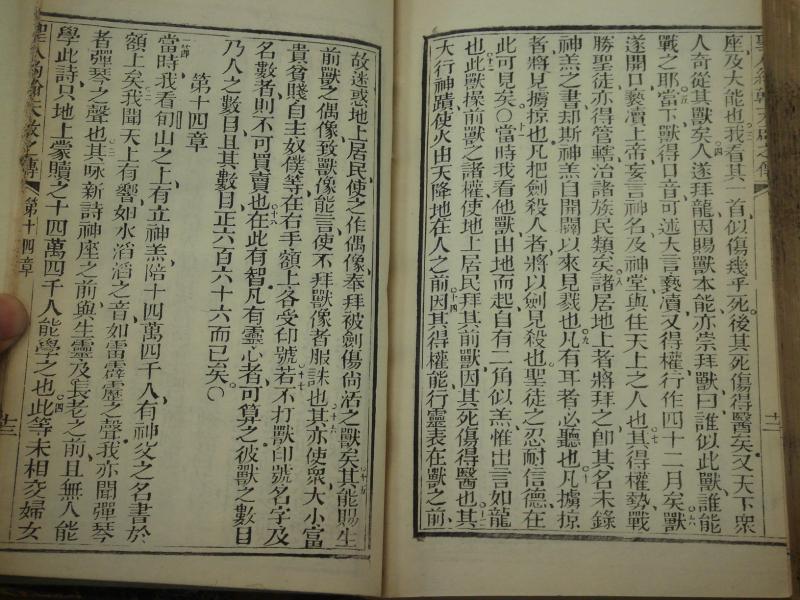 座、及大能也、我看其一首似傷幾乎死、後其死傷得醫矣、又天下衆
人奇從其獸矣、人遂拜龍、因賜獸本能、亦崇拜獸曰、誰似此獸、誰能
戰之耶、當下獸得口音、可述大言褻瀆、又得權行作四十二月矣、獸
遂開口褻瀆上帝、妄言神名及神堂、與住天上之人也、其得權勢、戰
勝聖徒、亦得管轄治諸族民類矣、諸居地上者將拜之、即其名未錄
神羔之書、却斯神羔自開闢以來見戮也、凡有耳者必聽也、凡擄掠
者將見擄掠也、凡把劍殺人者、將以劍見殺也、聖徒之忍耐信德、在
此可見矣〇當時我看他獸出地而起、自有二角似羔、惟出言如龍
也、此獸操前獸之諸權、使地上居民拜其前獸、因其死傷得醫也、其
大行神蹟、使火由天降地、在人之前、因其得權能行靈表在獸之前、
故迷惑地上居民、使之作偶像、奉拜被劍傷尙活之獸矣、其能賜生
前獸之偶像、致獸像能言、使不拜獸像者服誅也、其亦使衆大小富
貴貧賤自主奴僕等、在右手額上各受印號、若不打獸印號名字及
名數者、則不可買賣也、在此有智、凡有靈心者、可算之彼獸之數目
乃人之數目、且其數目正六百六十六而已矣〇
第十四章
當時、我看郇山之上、有立神羔、陪十四萬四千人、有神父之名書於
額上矣、我聞天上有響、如水滔滔之音、如雷霹靂之聲、我亦聞彈琴
者彈琴之聲也、其咏新詩神座之前、與生靈及長老之前、且無人能
學此詩、只地上蒙贖之十四萬四千人、能學之也、此等未相交婦女
第十四章
十三
十二